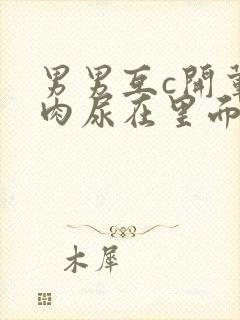 男男互c開葷
肉尿在里而
木犀